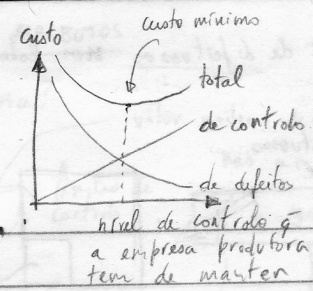 custo mínimo
custo
total
de controlo.
de defeitos
nível de controlo q
a empresa produtora
tem de manter